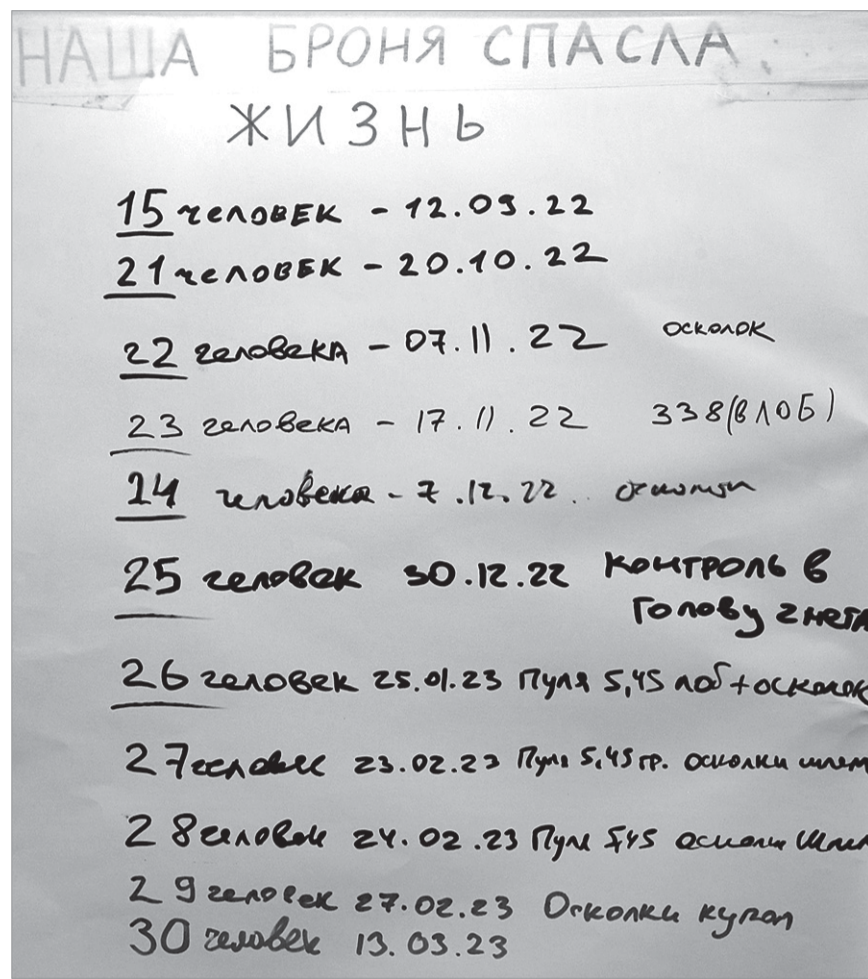 НАША БРОНЯ СПАСЛА
ЖИЗНЬ
15 человек - 12.09.22
21 человек - 20.10.22
22 человека - 07.11.22 осколок
23 человека - 17.11.22 338 (В ЛОБ)
24 человека - 7.12.22 осколки
25 человек 30.12.22 Контроль в
голову 2 метра
26 человек 25.01.23 Пуля 5,45 лоб + осколок
27 человек 23.02.23 Пуля 5,45 гр. осколки шлем
28 человек 24.02.23 Пуля 5,45 осколки шлем
29 человек 27.02.23 Осколки купол
30 человек 13.03.23